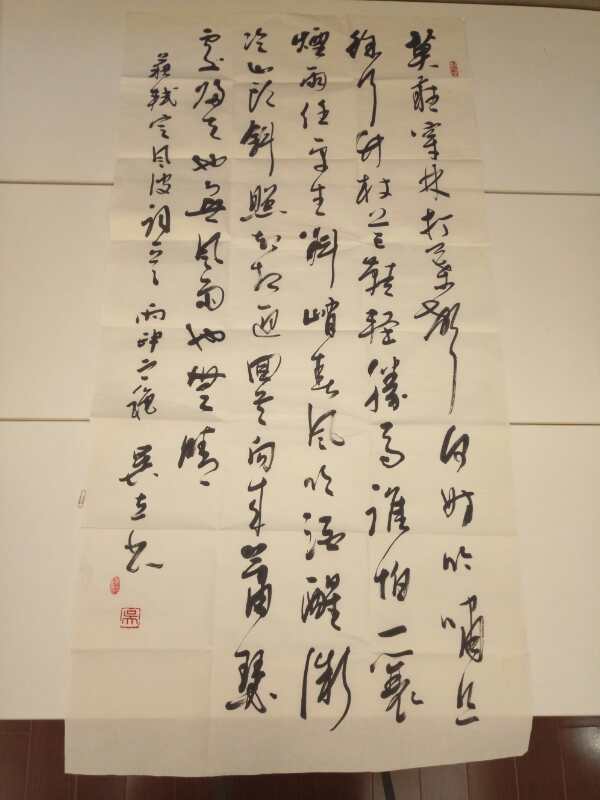 莫聽穿林打葉聲何妨吟嘯且
徐行竹杖芒鞋輕勝馬誰怕一蓑
煙雨任平生料峭春風吹酒醒微
冷山頭斜照却相迎回首向來蕭瑟
處歸去也無風雨也無晴
蘇軾定風波詞一首 丙申之秋 吳立